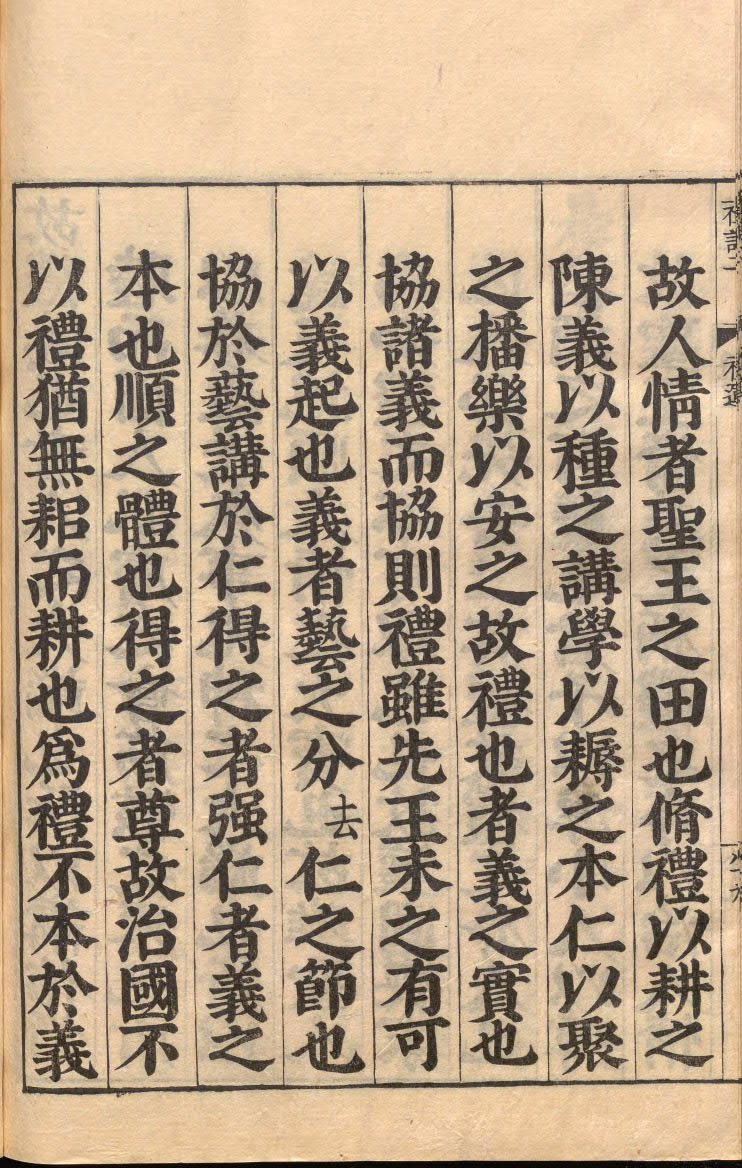 故人情者聖王之田也脩禮以耕之
陳義以種之講學以耨之本仁以聚
之播樂以安之故禮也者義之實也
協諸義而協則禮雖先王未之有可
以義起也義者藝之分去仁之節也
協於藝講於仁得之者强仁者義之
本也順之體也得之者尊故治國不
以禮猶無耜而耕也爲禮不本於義